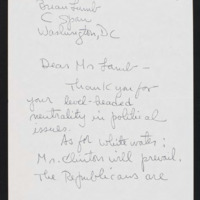 Brian Lamb
C Span
Washington, DC
Dear Mr Lamb -
Thank you for
your level-headed
neutrality in political
issues.
As for White water;
Mrs. Clinton will prevail.
The Republicans are